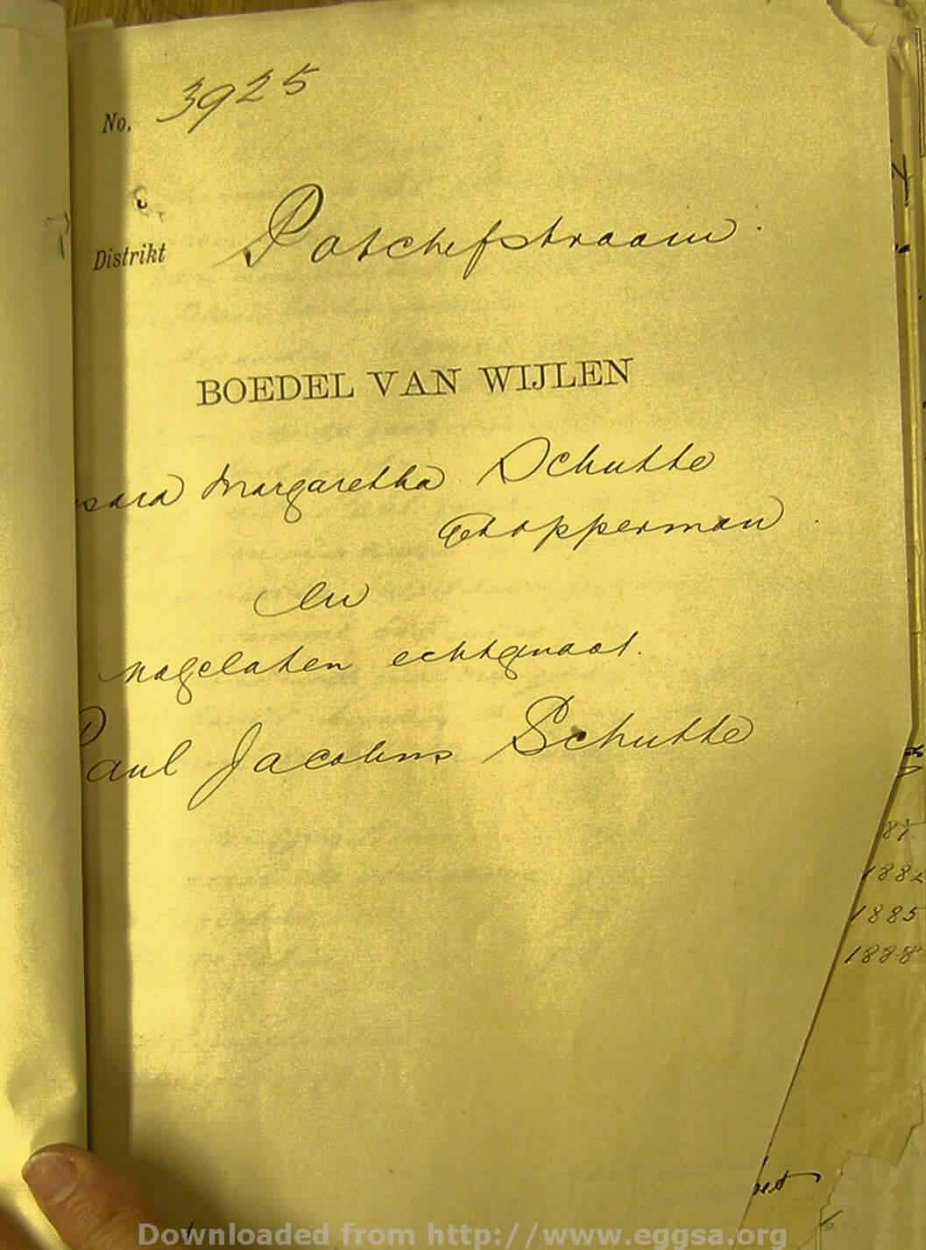 No. 3925
Distrikt Potchefstroom.
BOEDEL VAN WIJLEN
Margaretha Schutte
en
nagelaten echtgenoot.
Paul Jacobus Schutte
1882
1885
1888
Downloaded from http://www.eggsa.org